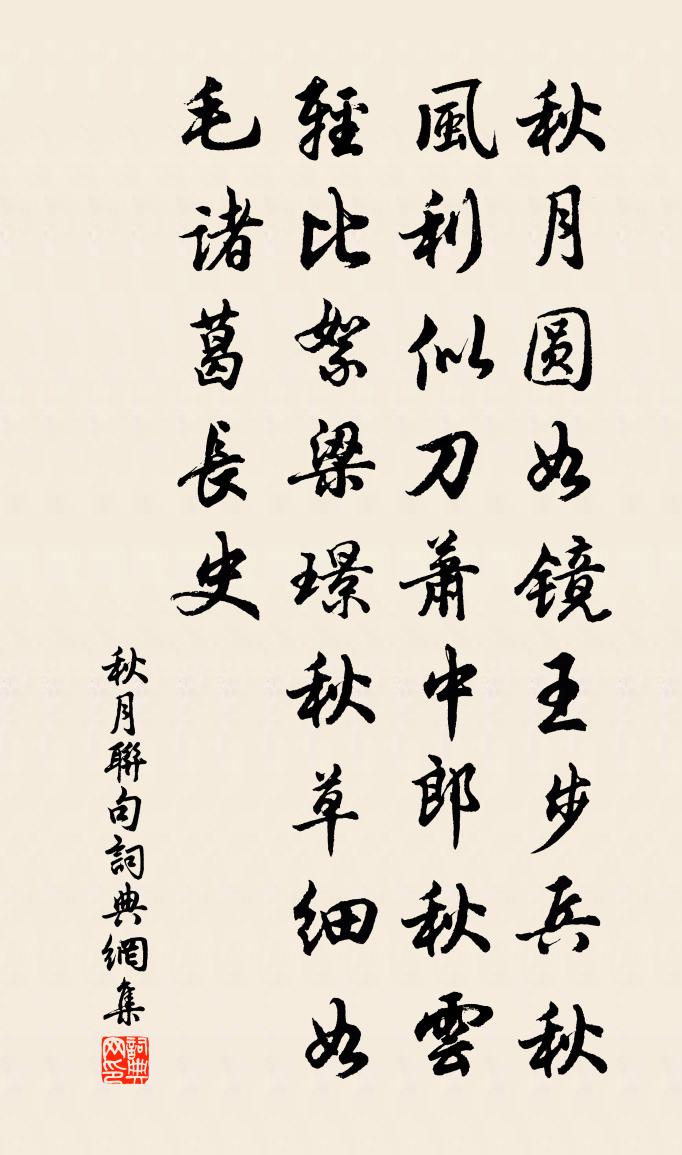 秋月圆如镜王步兵秋
風利似刀萧中郎秋雲
輕比絮梁璟秋草细如
毛诸葛長史
秋月聯句詞典網集
詞典网印